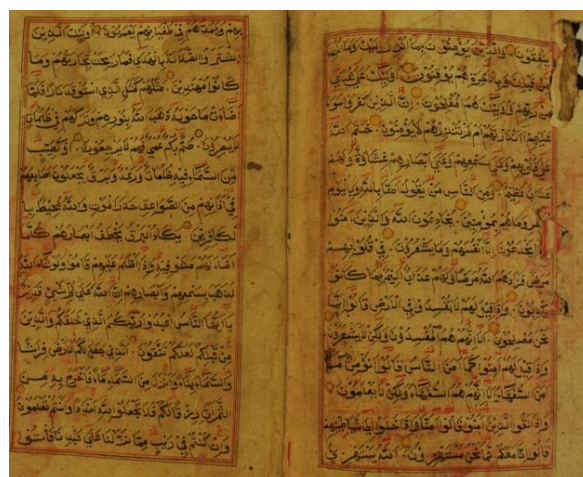 ينفقون والذين يؤمنون بما انزل اليك وما انزل
من قبلك وبالاخرة هم يوقنون اولئك على هدى
من ربهم واولئك هم المفلحون ان الذين كفروا سواء
عليهم ءانذرتهم ام لم تنذرهم لا يؤمنون ختم الله
على قلوبهم وعلى سمعهم وعلى ابصارهم غشاوة ولهم
عذاب عظيم ومن الناس من يقول امنا بالله وباليوم
الاخر وما هم بمؤمنين يخادعون الله والذين امنوا
وما يخدعون الا انفسهم وما يشعرون في قلوبهم
مرض فزادهم الله مرضا ولهم عذاب اليم بما كانوا
يكذبون واذا قيل لهم لا تفسدوا في الارض قالوا انما
نحن مصلحون الا انهم هم المفسدون ولكن لا يشعرون
واذا قيل لهم امنوا كما امن الناس قالوا انؤمن كما
امن السفهاء الا انهم هم السفهاء ولكن لا يعلمون
واذا لقوا الذين امنوا قالوا امنا واذا خلوا الى شياطينهم
قالوا انا معكم انما نحن مستهزؤن الله يستهزئ
بهم ويمدهم في طغيانهم يعمهون اولئك الذين
اشتروا الضلالة بالهدى فما ربحت تجارتهم وما
كانوا مهتدين مثلهم كمثل الذي استوقد نارا فلما
اضاءت ما حوله ذهب الله بنورهم وتركهم في ظلمات
لا يبصرون صم بكم عمي فهم لا يرجعون او كصيب
من السماء فيه ظلمات ورعد وبرق يجعلون اصابعهم
في اذانهم من الصواعق حذر الموت والله محيط با
لكافرين يكاد البرق يخطف ابصارهم كلما
اضاء لهم مشوا فيه واذا اظلم عليهم قاموا ولو شاء الله
لذهب بسمعهم وابصارهم ان الله على كل شيء قدير
يا ايها الناس اعبدوا ربكم الذي خلقكم والذين
من قبلكم لعلكم تتقون الذي جعل لكم الارض فراشا
والسماء بناء وانزل من السماء ماء فاخرج به من
الثمرات رزقا لكم فلا تجعلوا لله اندادا وانتم تعلمون
وان كنتم في ريب مما نزلنا على عبدنا فأتوا